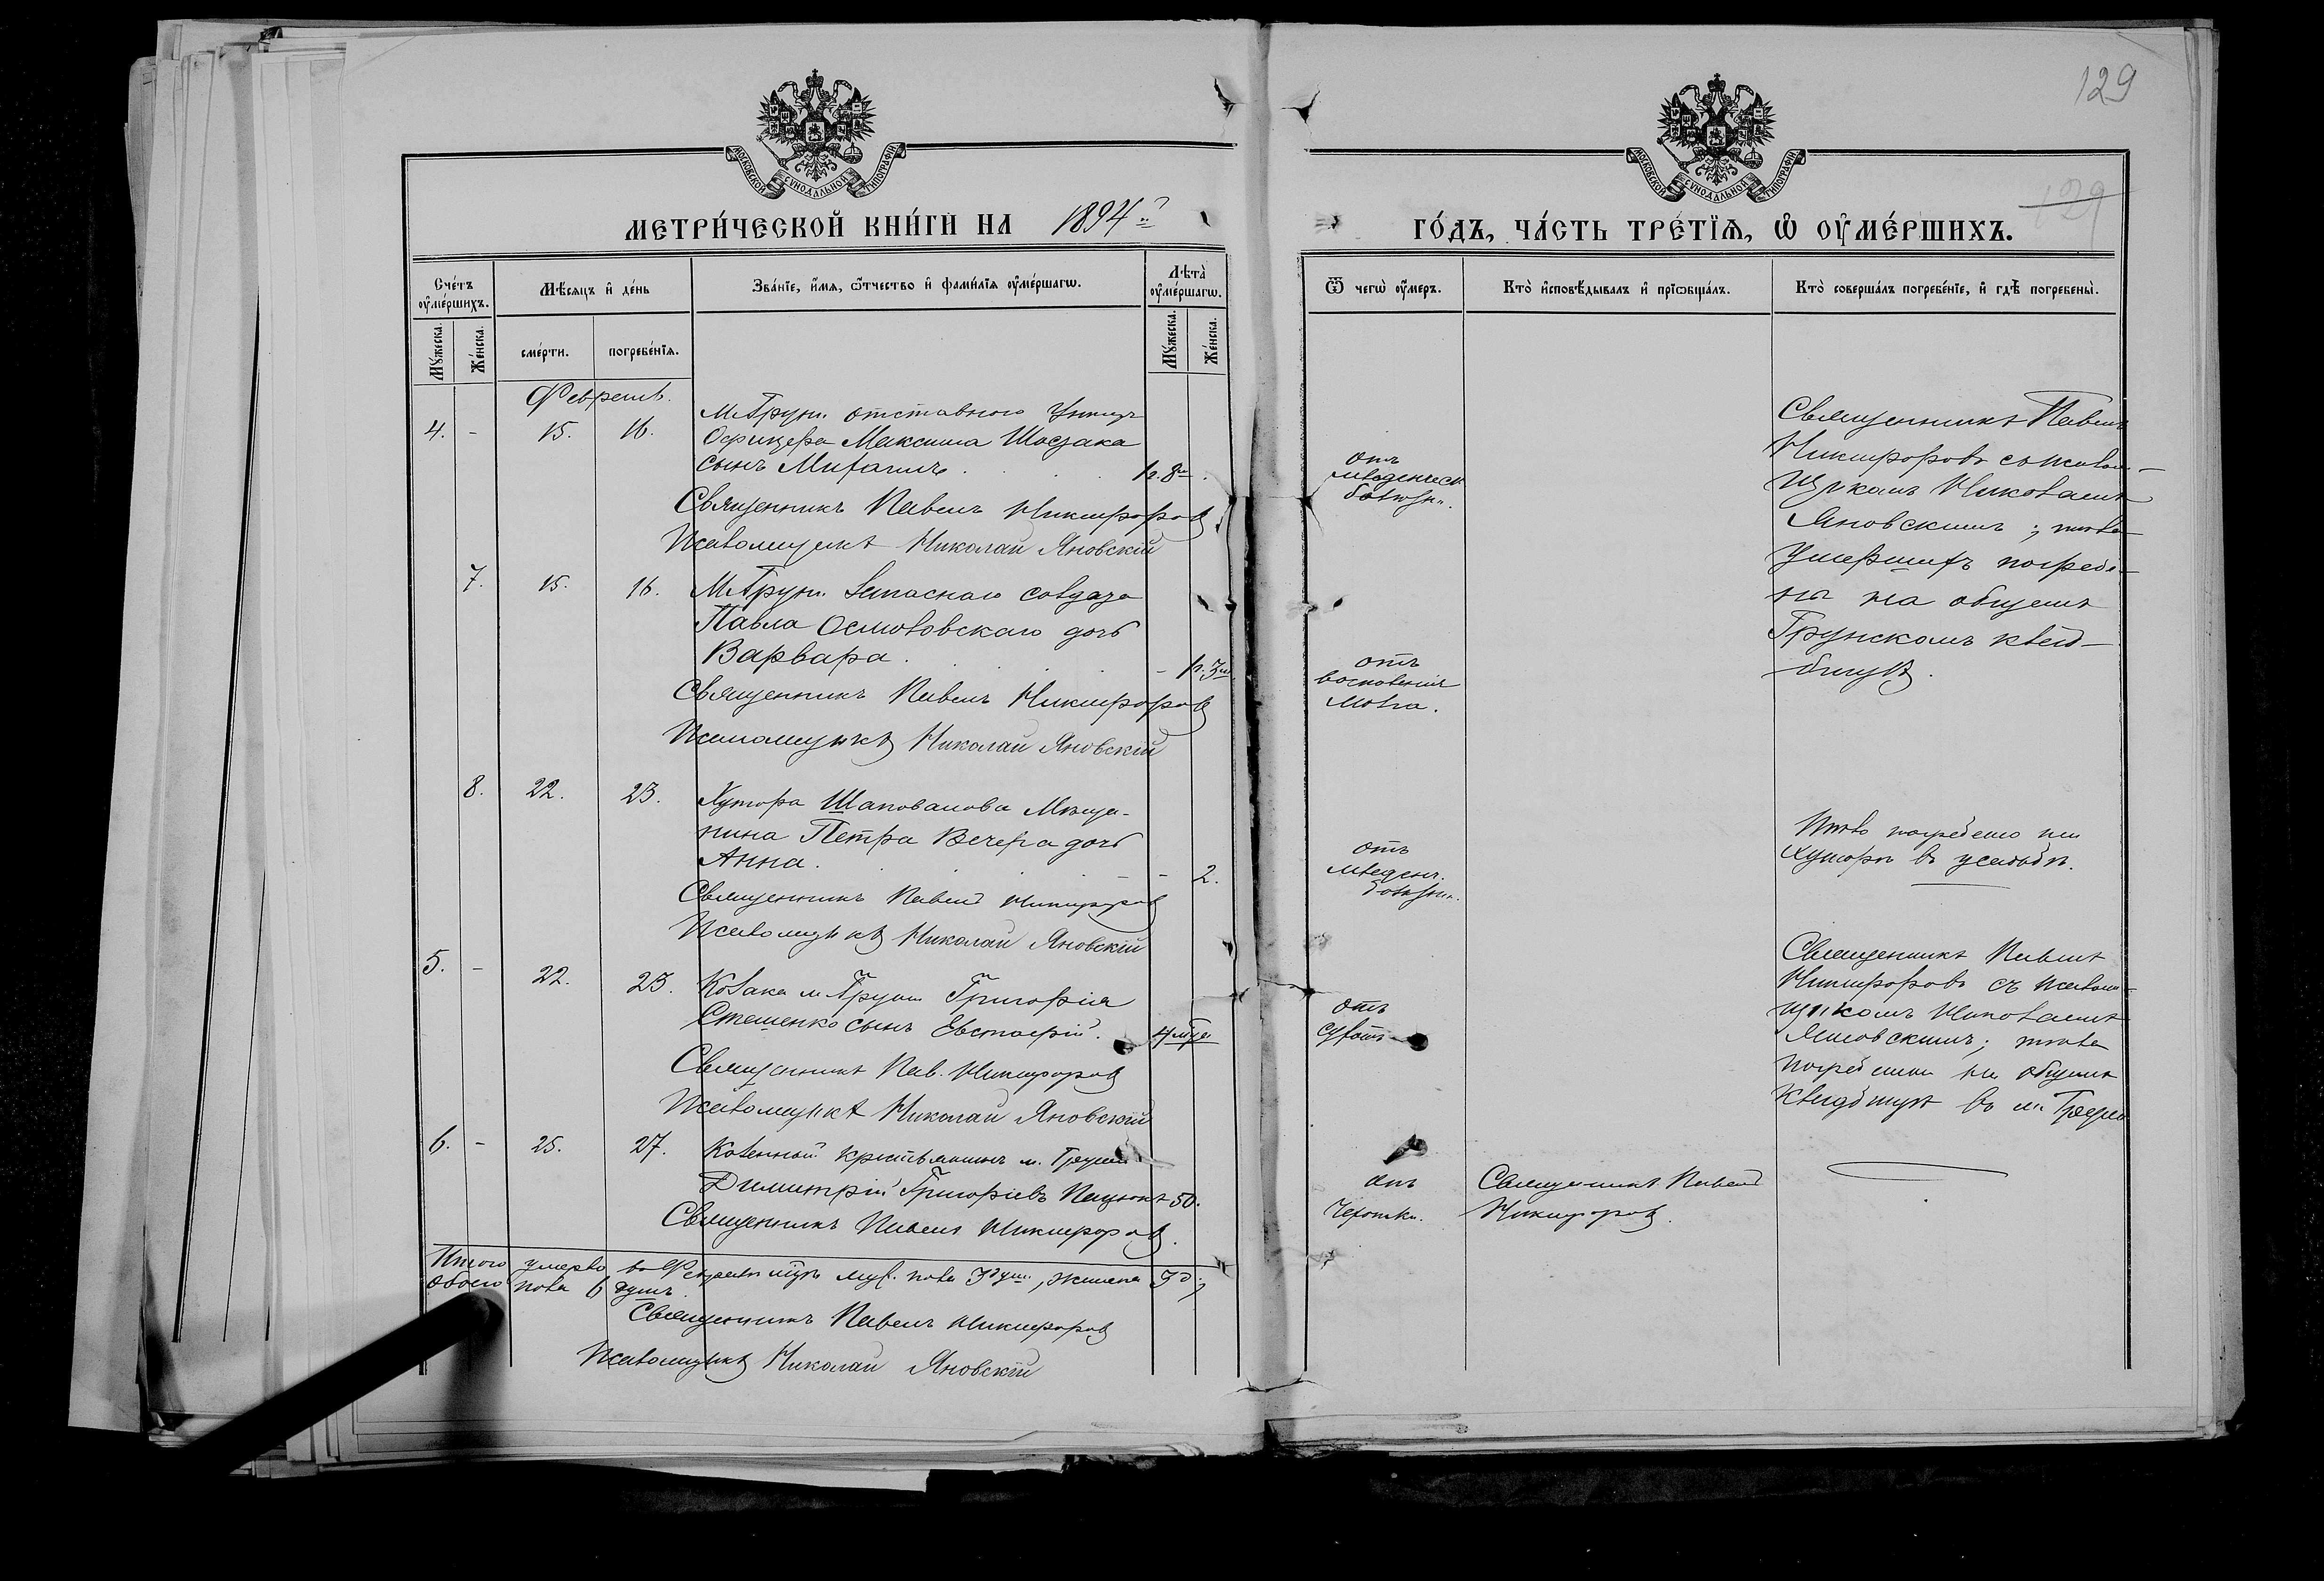 129
МОСКОВСКОЙ СУНОДАЛЬНОЙ ТИПОГРАФІИ
МОСКОВСКОЙ СУНОДАЛЬНОЙ ТИПОГРАФІИ
129
МЕТРИ́ЧЕСКОЙ КНИ́ГИ НА 1894
ГО́ДЪ, ЧА́СТЬ ТРЕ́ТЇѦ, Ѡ҆ ОУ҆МЕ́РШИХЪ.
Сче́тъ оу҆ме́ршихъ.
Мѣ́сяцъ и҆ де́нь
Зва́нїе, и҆́мѧ, ѻ҆́тчество и҆ фами́лїѧ оу҆ме́ршагѡ.
Лѣ́та оу҆ме́ршагѡ.
Ѿ чегѡ̀ оу҆́меръ.
Кто̀ и҆сповѣ́дывалъ и҆ прїѡбща́лъ.
Кто̀ соверша́лъ погребе́нїе, и҆ гдѣ̀ погребены̀.
Мꙋ́жеска.
Же́нска.
сме́рти.
погребе́нїѧ.
Мꙋ́жеска.
Же́нска.
Февраль.
4. - 15. 16. М. Груни отставного Унтеръ
Офицера Максима
сынъ Михаилъ.
Священникъ Павелъ Никифоровъ
Псаломщикъ Николай Яновскій
отъ
младенческ.
болѣзни.
Священникъ Павелъ
Никифоровъ съ псалом-
щикомъ Николаемъ
Яновскимъ; тѣла
умершихъ погребе-
ны на общемъ
Грунскомъ клад-
бищѣ.
7. 15. 16. М. Груни запаснаго солдата
Павла Осмоловскаго дочь
Варвара.
Священникъ Павелъ Никифоровъ
Псаломщикъ Николай Яновскій
отъ
воспаленія
мозга.
8. 22. 23. Хутора Шаповалова Мѣща-
нина Петра Вечера дочь
Анна. - 2.
Священникъ Павелъ Никифоровъ
Псаломщикъ Николай Яновскій
отъ
младен.
болѣзни.
Тѣло погребено на
хуторѣ въ усадьбѣ.
5. - 22. 23. Козака м. Груни Григорія
Стешенко сынъ Евстафій.
Священникъ Пав. Никифоровъ
Псаломщикъ Николай Яновскій
отъ
Священникъ Павелъ
Никифоровъ съ псалом-
щикомъ Николаемъ
Яновскимъ; тѣла
погребены на общемъ
кладбищѣ въ м. Груни
6. - 25. 27. Казенный крестьянинъ м. Груни
Димитрій Григоріевъ Пацюкъ 50.
Священникъ Павелъ Никифоровъ.
отъ
чахотки.
Священникъ Павелъ
Никифоровъ.
Итого умерло въ Февралѣ м-цѣ муж. пола 3 душ., женска 3 д.,
обоего пола 6 душъ.
Священникъ Павелъ Никифоровъ
Псаломщикъ Николай Яновскій